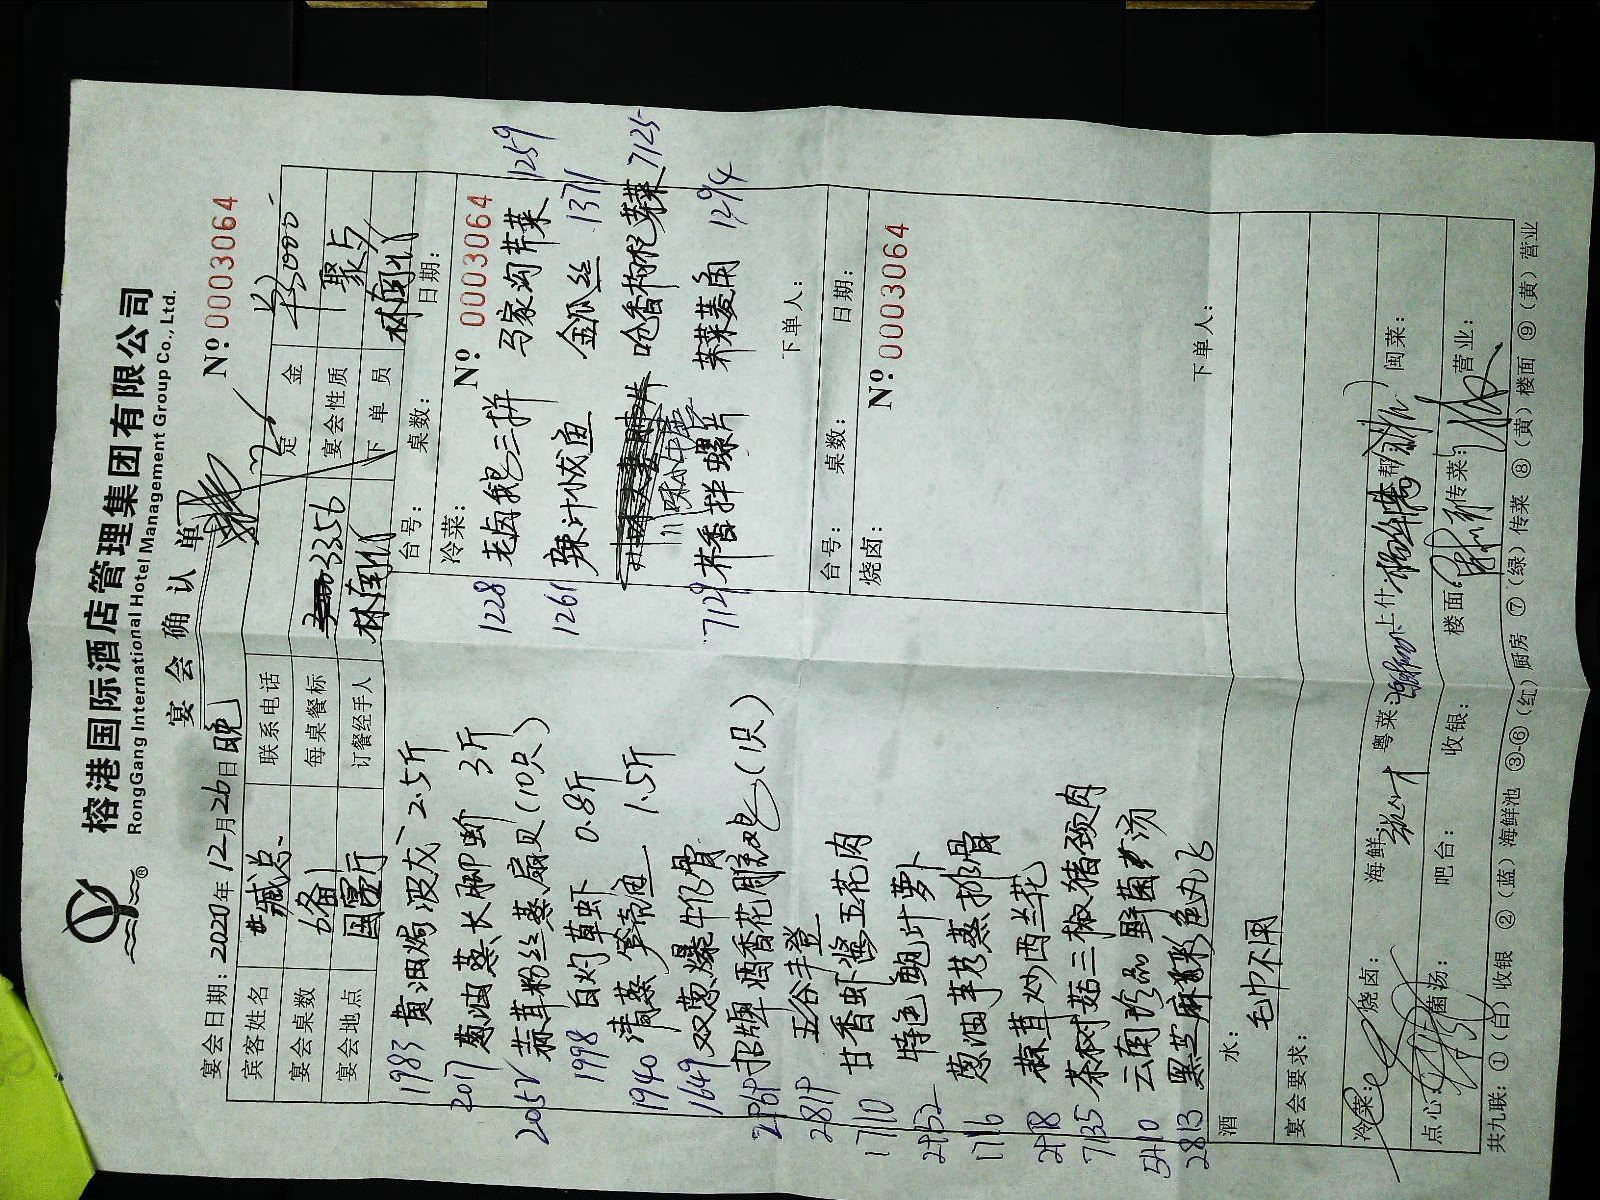 榕港国际酒店管理集团有限公司
RongGang International Hotel Management Group Co., Ltd.
宴会确认单
宴会日期: 2020年12月26日晚
Nº 0003064
宾客姓名 臧总 联系电话 定金
宴会桌数 每桌餐标 3356 宴会性质 聚点
宴会地点 国宴厅 订餐经手人 林 下单员 林
台号: 桌数: 日期:
冷菜: Nº 0003064
1228 老卤鹅三拼 马家沟芹菜 1259
1261 辣汁小龙鱼 金瓜丝 1371
呛香枸杞芽菜 7125
7129 拌螺片 菱角 1294
下单人:
台号: 桌数: 日期:
烧卤: Nº 0003064
下单人:
1983 黄油焗波龙 2.5斤
2017 葱油蒸长脚蚧 3斤
2052 蒜茸粉丝蒸扇贝(10只)
1998 白灼草虾 0.8斤
1940 清蒸笋壳鱼 1.5斤
1649 双葱爆牛仔骨
招牌酒香花雕鸡(1只)
281P 五谷丰登
1710 甘香虾酱五花肉
2452 特色鲍汁萝卜
1716 葱油芋艿蒸排骨
2418 蒜茸炒西兰花
7135 茶树菇三椒猪颈肉
5410 云南珍品野菌汤
2813 黑芝麻彩色丸
酒水:
毛巾不用
宴会要求:
冷菜: 烧卤: 海鲜: 粤菜: 上什: 杭帮: 闽菜:
点心: 菌汤: 吧台: 收银: 楼面: 传菜: 营业:
共九联: ①(白)收银 ②(蓝)海鲜池 ③-⑥(红)厨房 ⑦(绿)传菜 ⑧(黄)楼面 ⑨(黄)营业